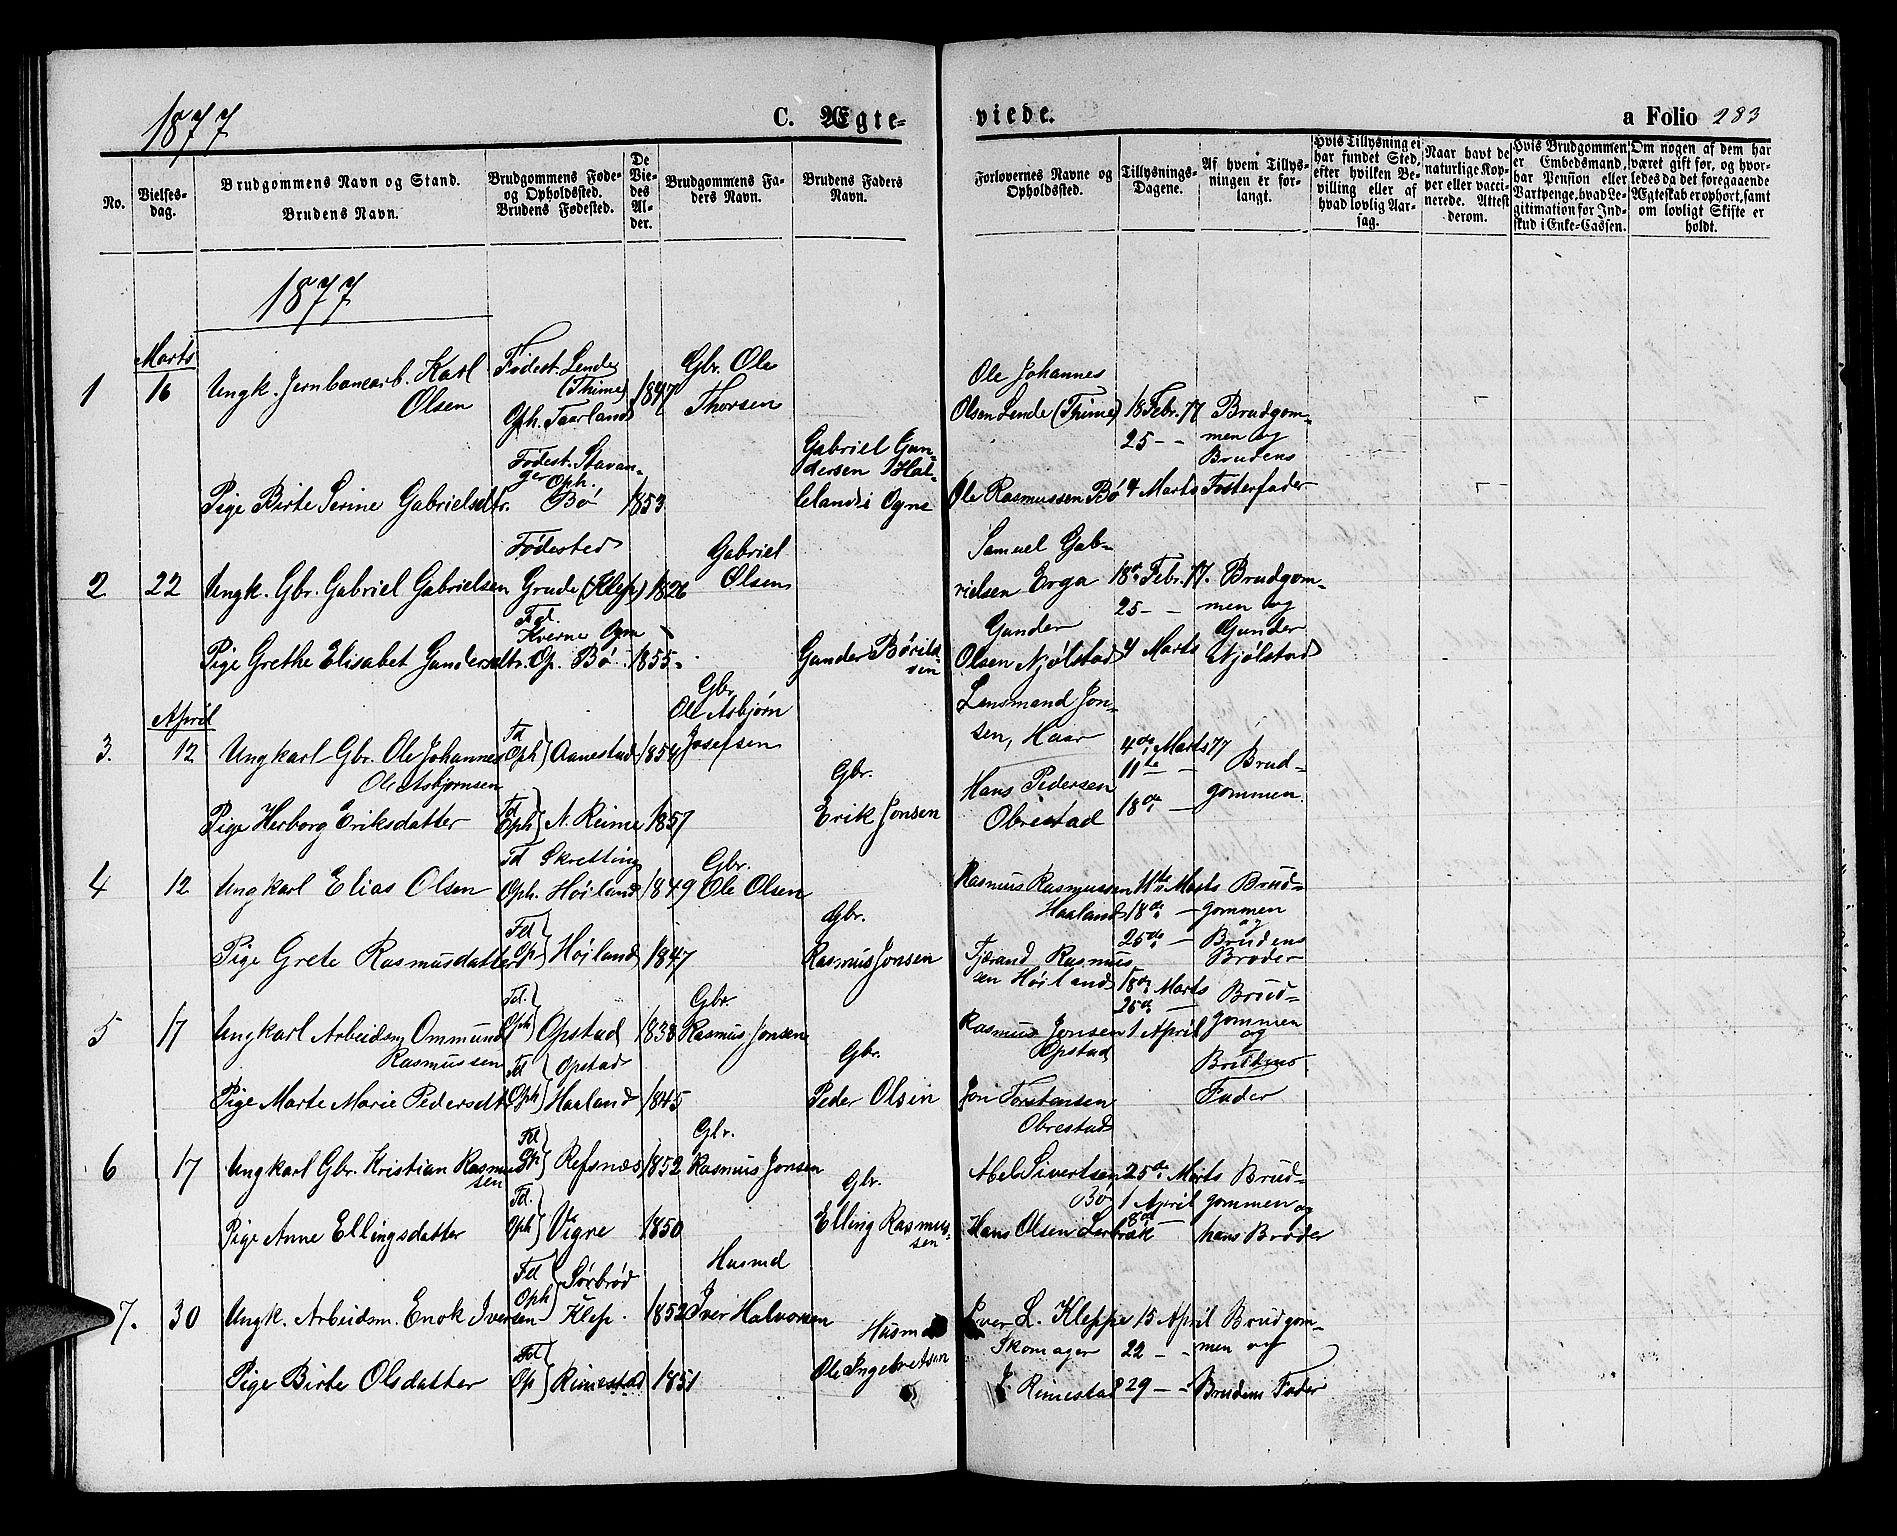 1877
C. Ægte-
viede.
a Folio 283
No.
Vielses-
dag.
Brudgommens Navn og Stand.
Brudens Navn.
Brudgommens Føde-
og Opholdssted.
Brudens Fødested.
De
Vie-
des
Al-
der.
Brudgommens Fa-
ders Navn.
Brudens Faders
Navn.
Forlovernes Navne og
Opholdssted.
Tillysnings-
Dagene.
Af hvem Tillys-
ningen er for-
langt.
Hvis Tillysning ei
har fundet Sted,
efter hvilken Be-
villing eller af
hvad lovlig Aar-
sag.
Naar havt de
naturlige Kop-
per eller vacci-
nerede. Attest
derom.
Hvis Brudgommen
er Embedsmand,
har Pension eller
Vartpenge, hvad Le-
gitimation for Ind-
skud i Enke-Cassen.
Om nogen af dem har
været gift før, og hvor-
ledes da det foregaaende
Ægteskab er ophørt, samt
om lovligt Skifte er
holdt.
1877
Marts
1 16 Ungk. Jernbanearb. Karl
Olsen
Fødest. Lende
(Thime)
Oph. Taarland
1847
Gbr. Ole
Thorsen
Ole Johannes
Olsen Lende (Thime)
18 Febr. 77
25 - -
Brudgom-
men og
Brudens
Pige Birte Serine Gabrielsdtr.
Fødest. Stavan-
ger Oph.
Bö
1853
Gabriel Gun-
dersen Hal-
leland i Ogne
Ole Rasmussen Bö
4 Marts
Fosterfader
2 22 Ungk. Gbr. Gabriel Gabrielsen
Födested
Grude (Klep)
1826
Gabriel
Olsen
Samuel Gab-
rielsen Erga
18de Febr. 77.
25 - -
Brudgom-
men og
Gunder
Pige Grethe Elisabet Gundersdtr.
Fd.
Kverne Ogn
Op. Bö
1855
Gunder Börild-
sen
Gunder
Olsen Njölstad
4 Marts
Njölstad
April
3. 12 Ungkarl Gbr. Ole Johannes
Ole Asbjørnsen
Fd
Oph Aanestad
1854
Gbr.
Ole Asbjørn
Josefsen
Lensmand Jon-
sen, Haar
4de Marts 77
11te -
18de -
Brud-
gommen.
Pige Herborg Eriksdatter
Fd
Oph N. Reime
1857
Gbr.
Erik Jonsen
Hans Pedersen
Obrestad
4 12 Ungkarl Elias Olsen
Fd Skretting
Oph. Höiland
1849
Gbr.
Ole Olsen
Rasmus Rasmussen
Haaland
11te Marts
18de -
25de -
Brud-
gommen
og
Brudens
Broder
Pige Grete Rasmusdatter
Fd
Oph Höiland
1847
Gbr.
Rasmus Jonsen
Tjærand Rasmus
sen Höiland
5 17 Ungkarl Arbeidsm. Ommund
Rasmussen
Fd.
Oph Opstad
1838
Gbr.
Rasmus Jonsen
Rasmus Jonsen
Opstad
18de Marts
25de -
1 April
Brud-
gommen
og
Brudens
Fader
Pige Marte Marie Pedersdtr
Fd Opstad
Oph Haaland
1845
Gbr.
Peder Olsen
Jon Torstensen
Obrestad
6 17 Ungkarl Gbr. Kristian Rasmus
sen
Fd
Refsnæs
1852
Gbr.
Rasmus Jonsen
Abel Sivertsen
Bö
25de Marts
1 April
8de -
Brud-
gommen og
hans Broder
Pige Anne Ellingsdatter
Fd.
Oph Vigre
1850
Gbr.
Elling Rasmus-
sen
Hans Olsen Lerbræk
7. 30 Ungk. Arbeidsm. Enok Iversen
Fd
Oph Sørbrød
Klep.
1852
Husmd
Iver Halvorsen
Iver L. Kleppe
Skomager
15 April
22 - -
29 - -
Brudgom-
men og
Brudens Fader
Pige Birte Olsdatter
Fd
Op Rimestad
1851
Husmd
Ole Ingebretsen
Rimestad